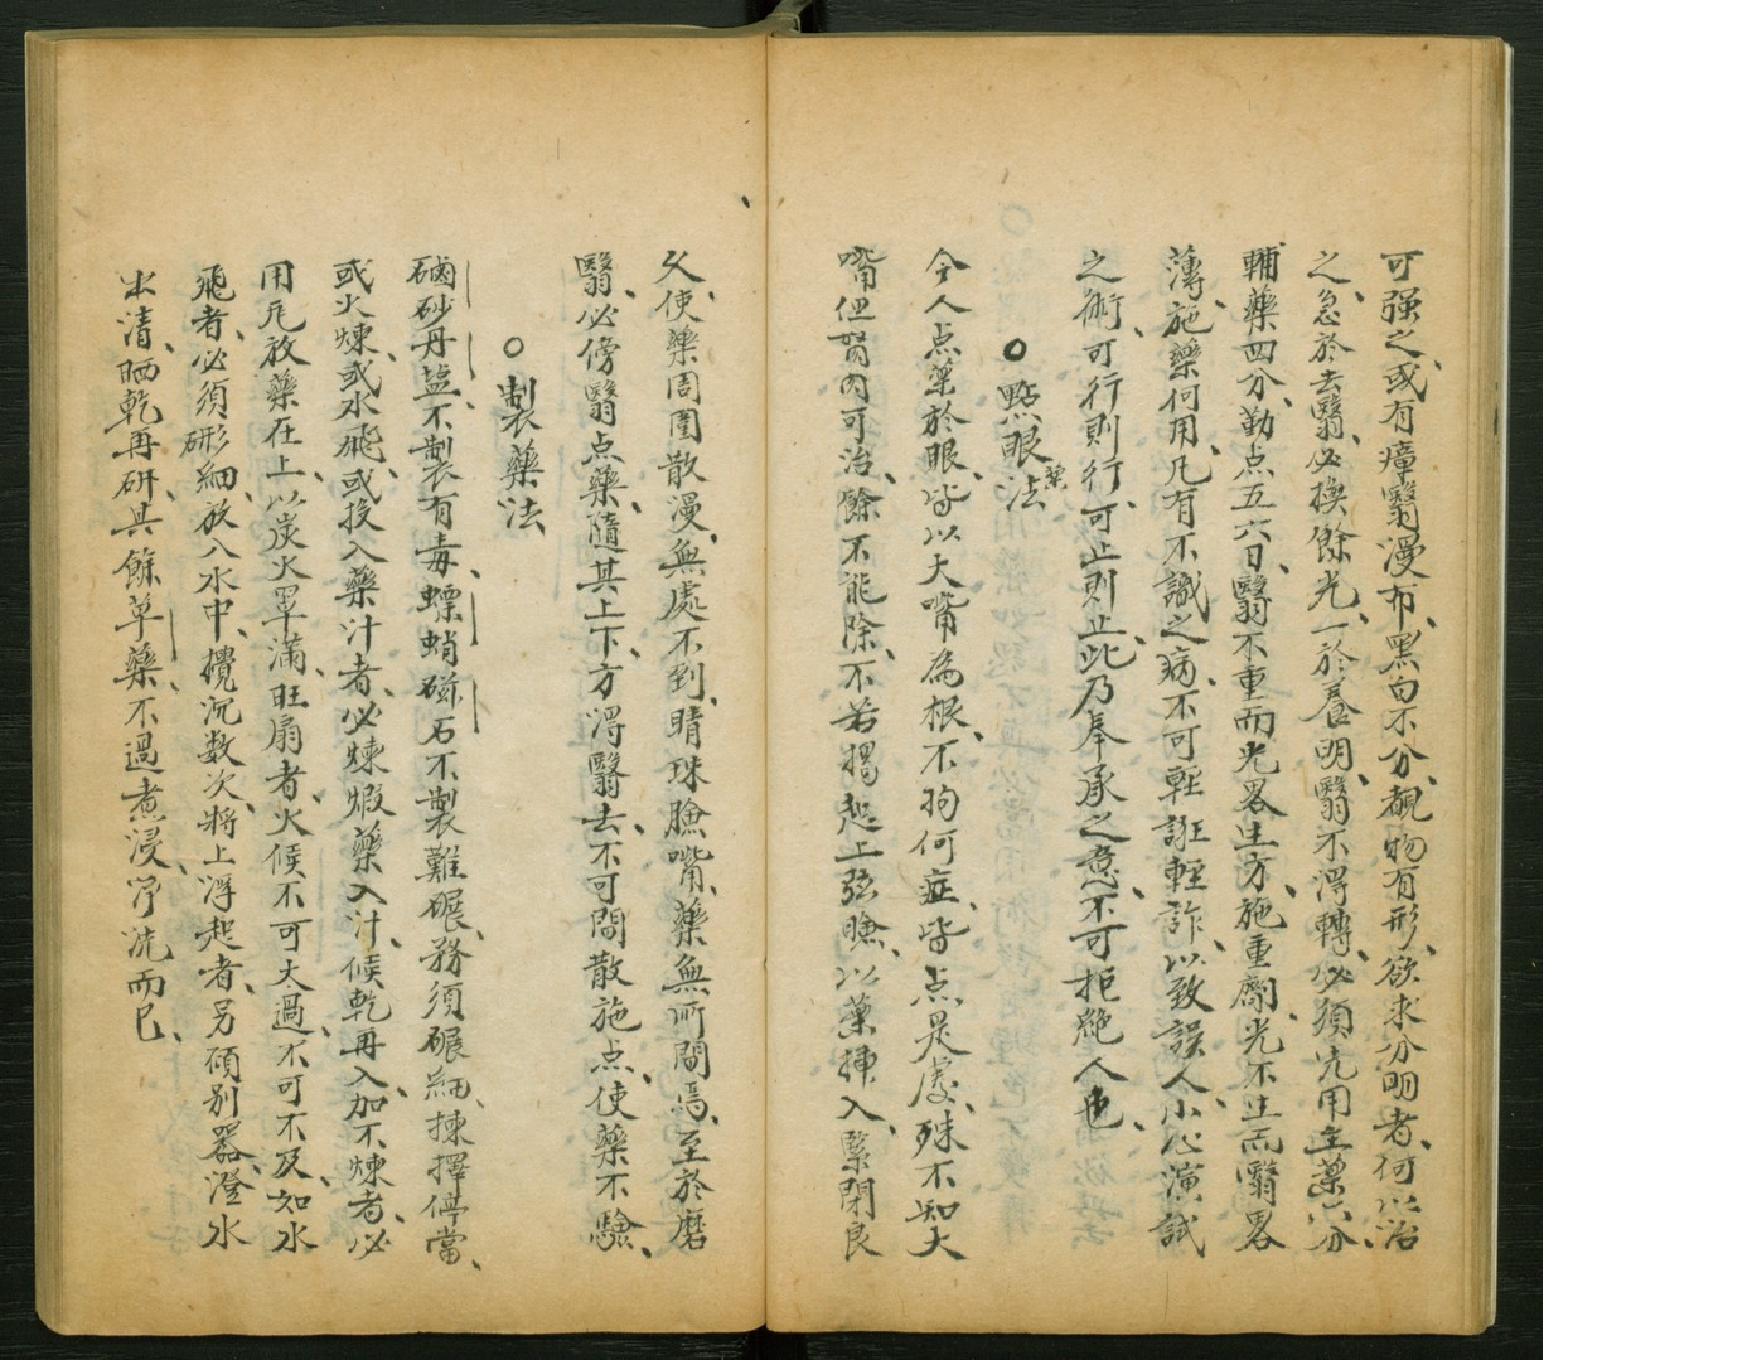 可强之、或有瘴翳漫布、黑白不分、覩物有形、欲求分明者、何以治
之、急於去翳、必換餘光、一於養明、翳不淂轉、必須先用主藥六分、
輔藥四分、勤点五六日、翳不重而光畧生方、施重劑、光不生而翳畧
薄、施藥何用、凡有不識之病、不可輕誑輕詐、以致誤人、小心演試
之術、可行則行、可止則止、此乃奉承之意、不可拒絶人也、
○點眼藥法
今人点藥於眼、皆以大嘴為根、不拘何症、皆点是處、殊不知大
嘴但胬肉可治、餘不能除、不若揭起上弦瞼、以藥揷入、緊閉良
久、使藥周圍散漫、無處不到、睛珠臉嘴、藥無所間焉、至於磨
翳、必傍翳点藥、隨其上下、方淂翳去、不可間散施点、使藥不驗、
○製藥法
硇砂丹塩、不製有毒、螵蛸磁石不製難碾、務須碾細、揀擇停當、
或火煉、或水飛、或投入藥汁者、必煉煆藥入汁、候乾再入、加不煉者、必
用瓦放藥在上、以炭火罩滿、旺扇者、火候不可太過、不可不及、如水
飛者、必須研細、放入水中、攪沉数次、將上浮起者、另傾别器、澄水
水清、晒乾再研、其餘草藥、不過煮浸、淨洗而已、